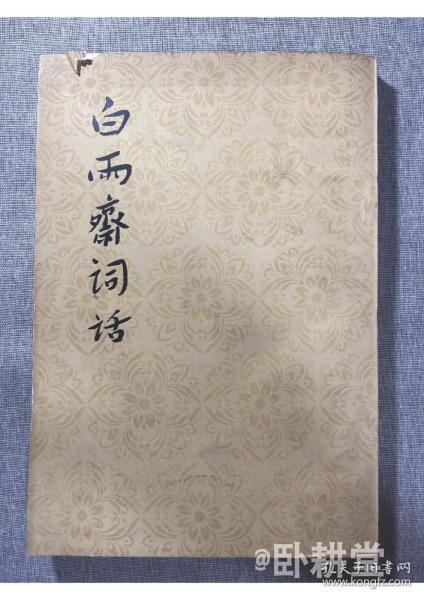 白雨齋词话
@卧耕堂
孔夫子旧书网
www.kongfz.com